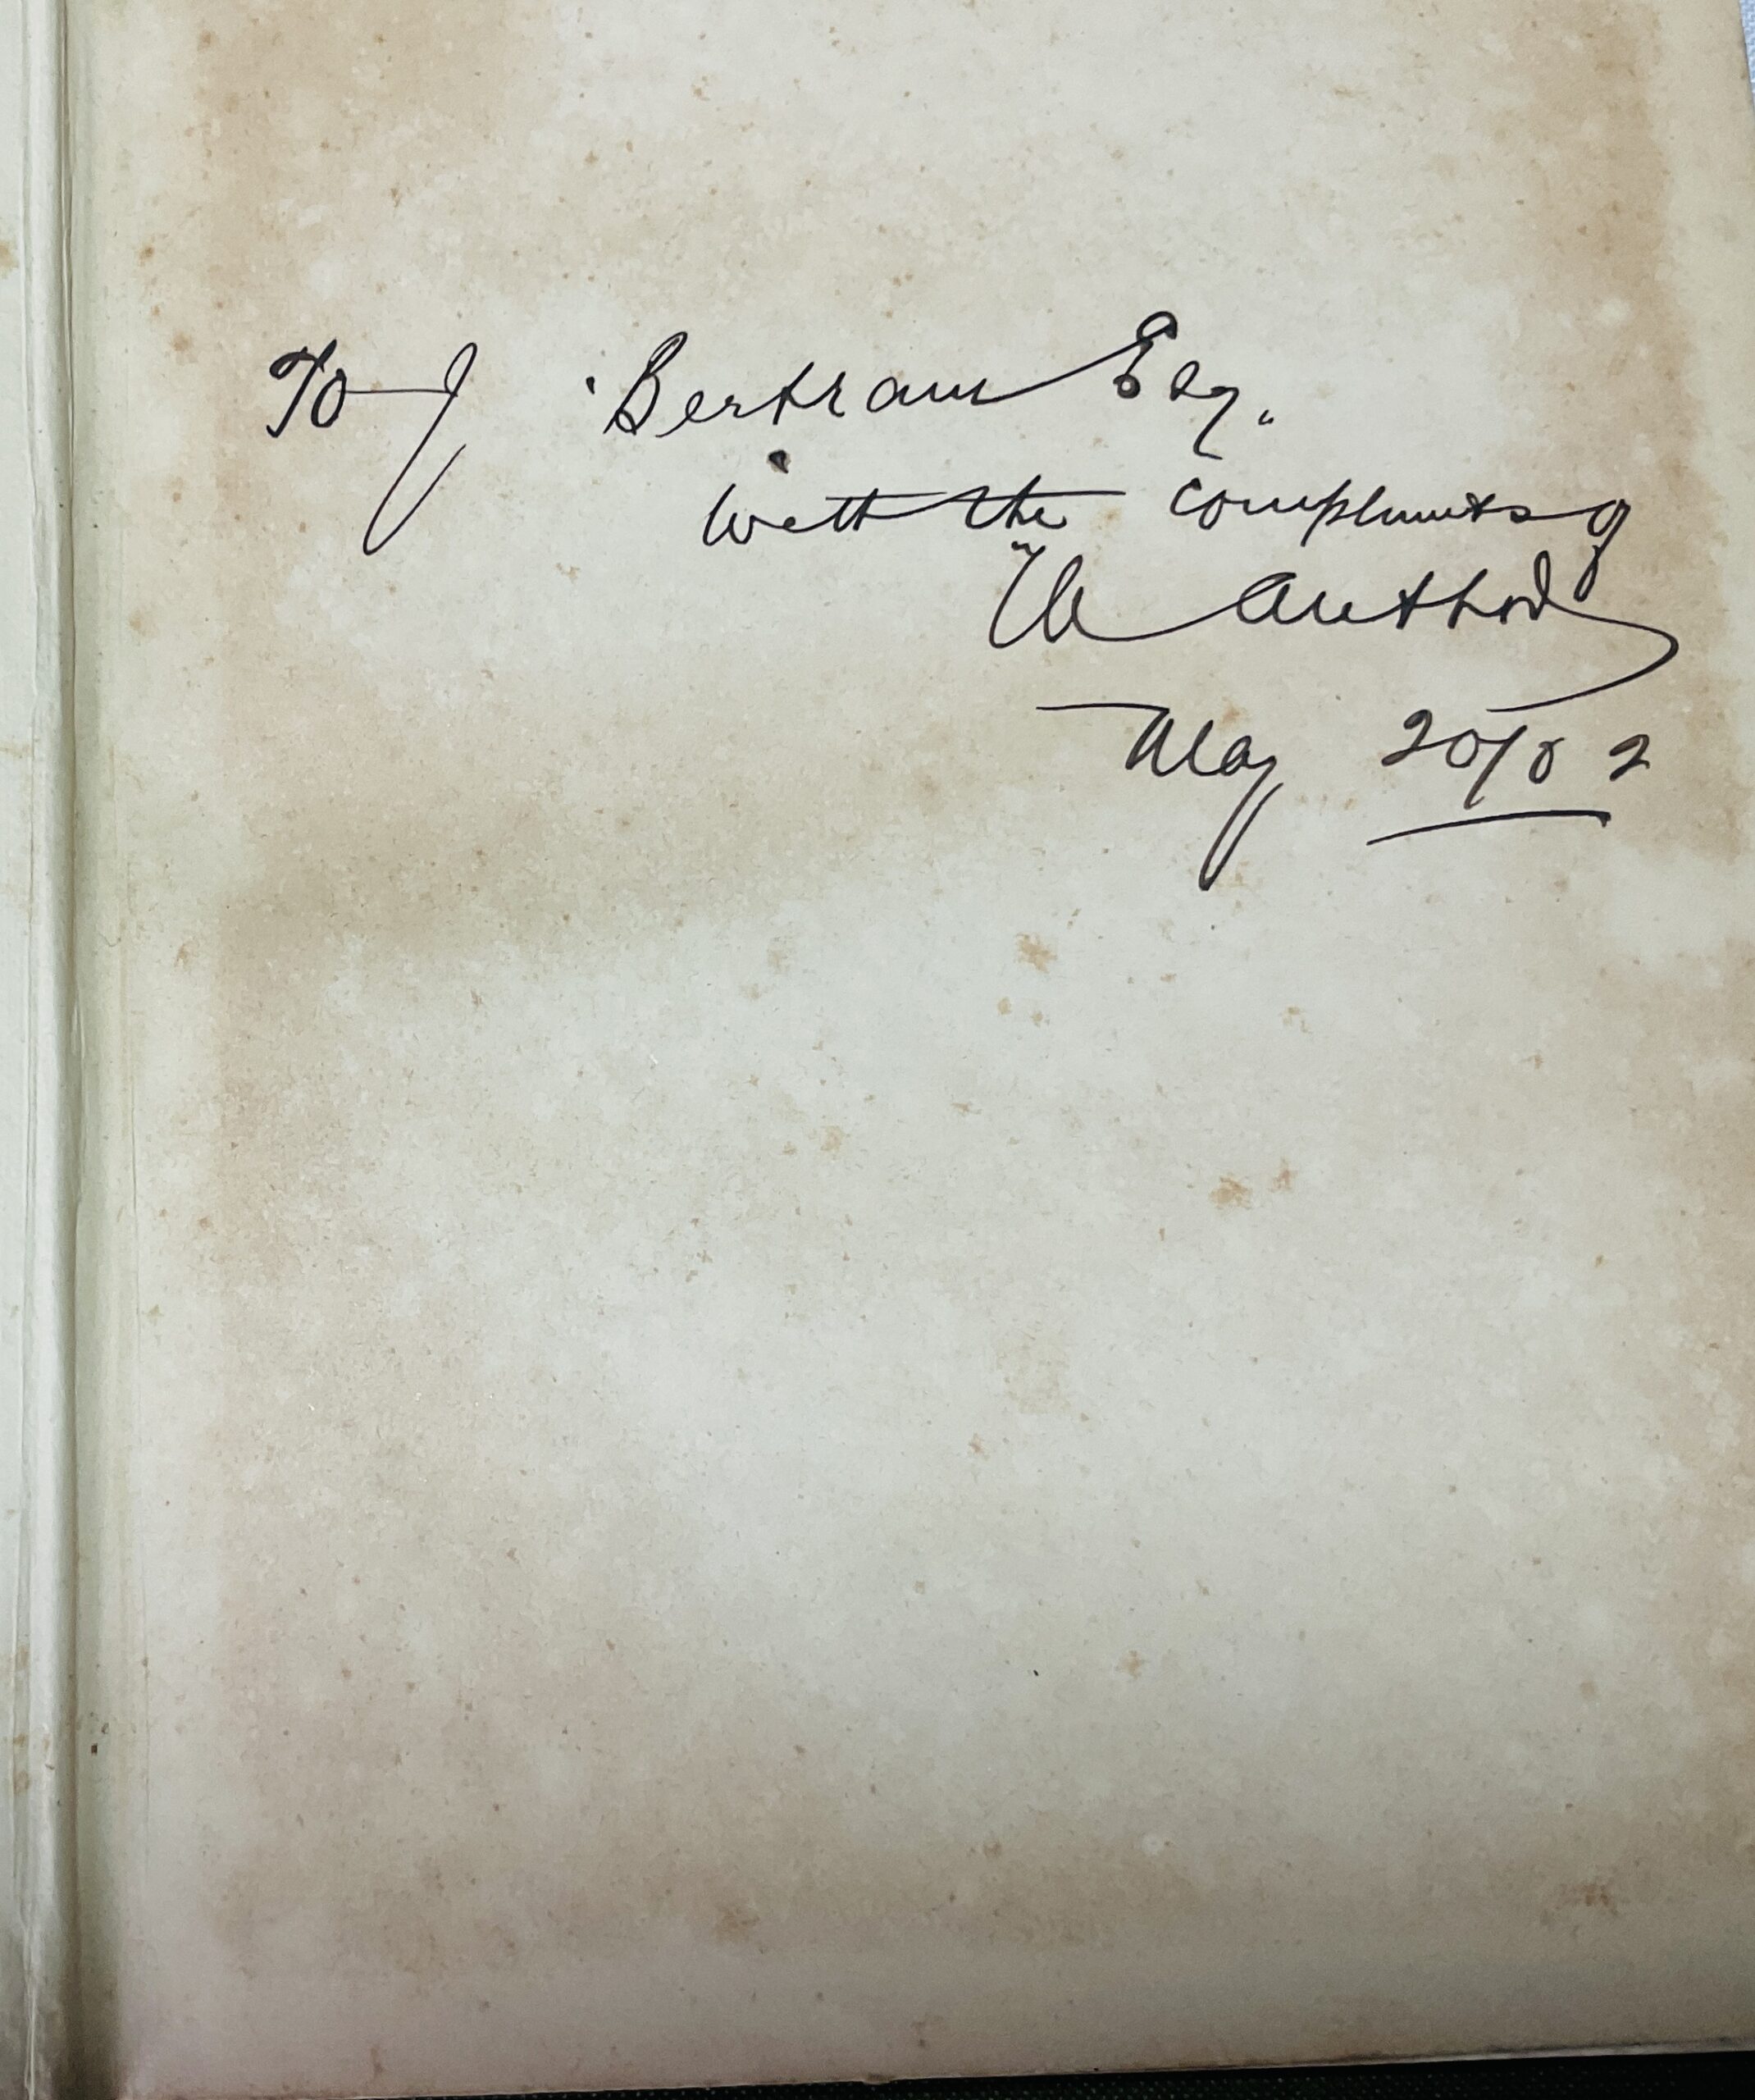 To J. Bertram Esq.
With the compliments of
The Author
May 20/02